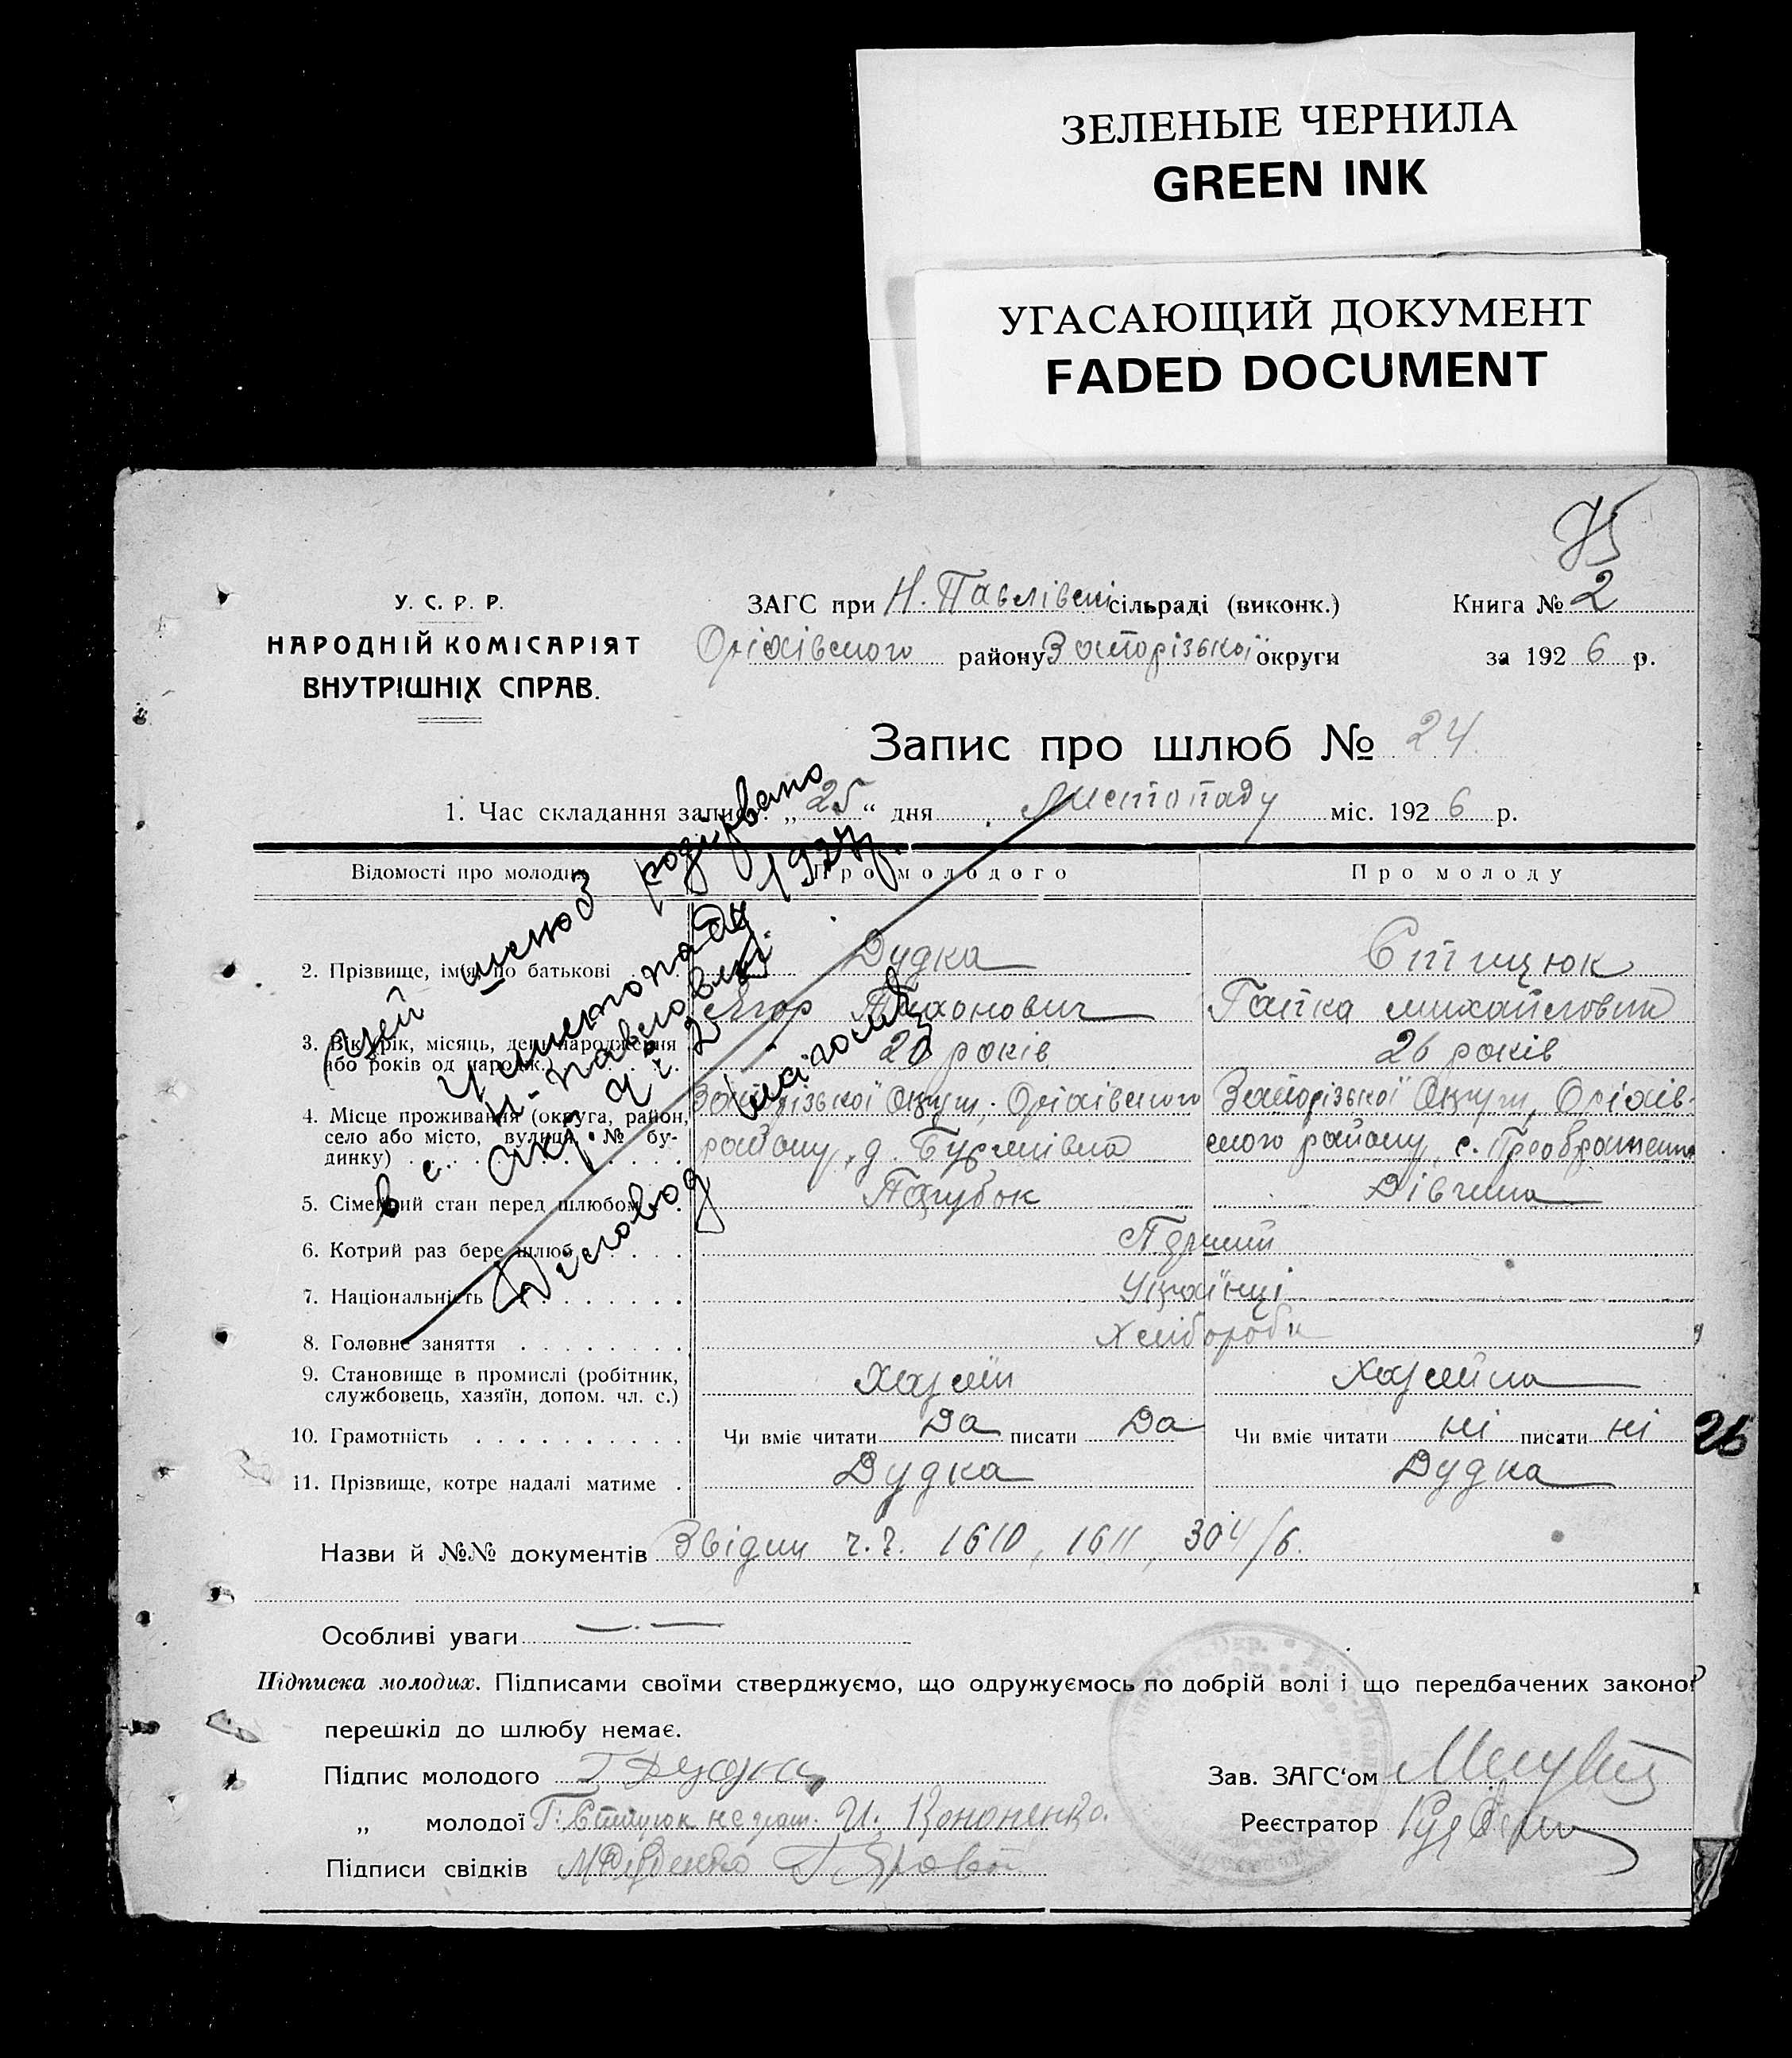 ЗЕЛЕНЫЕ ЧЕРНИЛА
GREEN INK
УГАСАЮЩИЙ ДОКУМЕНТ
FADED DOCUMENT
У. С. Р. Р.
НАРОДНІЙ КОМІСАРІЯТ
ВНУТРІШНІХ СПРАВ.
ЗАГС при Н. Павлівскі сільраді (виконк.)
Оріхівського району Запорізької округи
Книга № 2
за 1926 р.
Запис про шлюб № 24.
1. Час складання запису: „25“ дня Листопаду міс. 1926 р.
Відомості про молодих
Про молодого
Про молоду
2. Прізвище, ім'я, по батькові
Дудка
Пахонович
Гапка Михайловна
3. Вік (рік, місяць, день народження або років од народж.)
років
26 років
4. Місце проживання (округа, район, село або місто, вулиця, № будинку)
Запорізької Округи, Оріхівського
району, д.
Запорізької Округи, Оріхів-
ського району, с. Преображенка
5. Сімейний стан перед шлюбом
Парубок
Дівчина
6. Котрий раз бере шлюб
Перший
7. Національність
Українці
8. Головне заняття
Хлібороби
9. Становище в промислі (робітник, службовець, хазяїн, допом. чл. с.)
Хазяїн
Хазяйка
10. Грамотність
Чи вміє читати Да писати Да
Чи вміє читати ні писати ні
26
11. Прізвище, котре надалі матиме
Дудка
Дудка
Назви й №№ документів ч.ч. 1610, 1611, 304/6.
Особливі уваги
Підписка молодих. Підписами своїми стверджуємо, що одружуємось по добрій волі і що передбачених законом
перешкід до шлюбу немає.
Підпис молодого Дудка
„ молодої И. Кононенко.
Підписи свідків
Зав. ЗАГС'ом
Реєстратор
Цей шлюб розірвано
Листопаду 1927 р.
в с. Н-Павловкі
акт ч. 2
Діловод